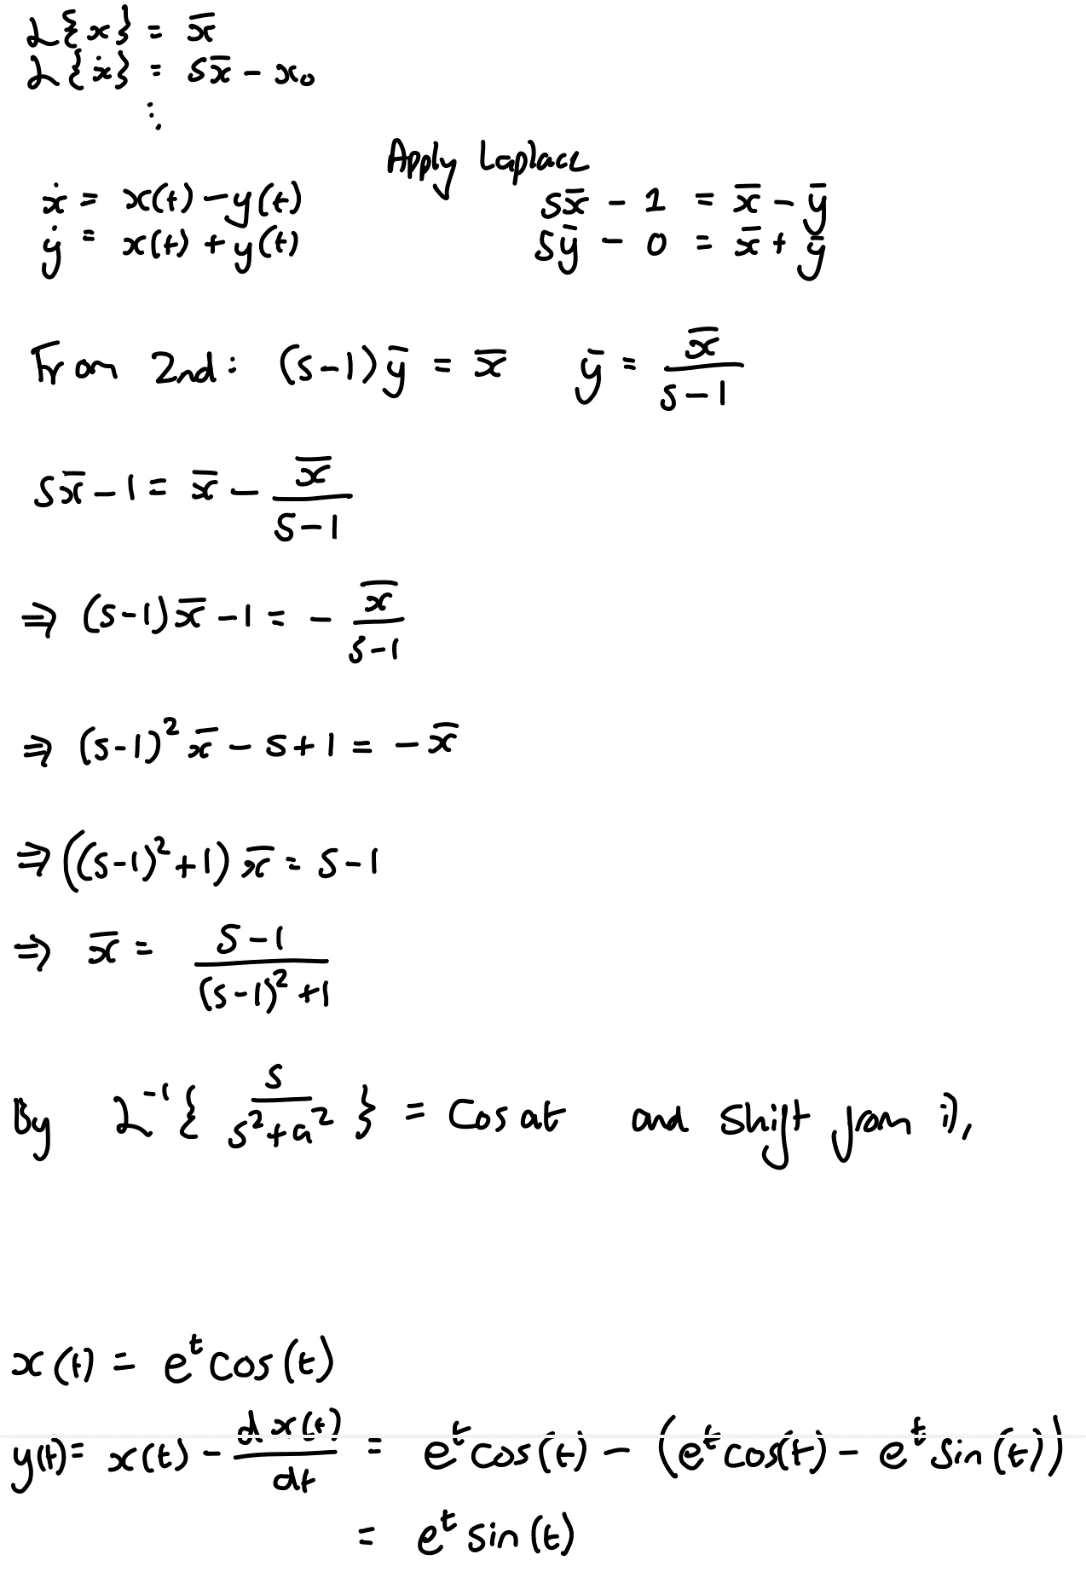 ℒ{x} = x̄
ℒ{ẋ} = sx̄ - x₀
⋮
Apply Laplace
ẋ = x(t) - y(t)    sx̄ - 1 = x̄ - ȳ
ẏ = x(t) + y(t)    sȳ - 0 = x̄ + ȳ
From 2nd: (s-1)ȳ = x̄    ȳ = x̄/(s-1)
sx̄ - 1 = x̄ - x̄/(s-1)
⇒ (s-1)x̄ - 1 = - x̄/(s-1)
⇒ (s-1)² x̄ - s + 1 = - x̄
⇒ ((s-1)² + 1) x̄ = s - 1
⇒ x̄ = (s-1)/((s-1)² + 1)
By ℒ⁻¹{ s/(s² + a²) } = Cos at and Shift from i),
x(t) = eᵗ cos(t)
y(t) = x(t) - dx(t)/dt = eᵗ cos(t) - (eᵗ cos(t) - eᵗ sin(t))
= eᵗ sin(t)